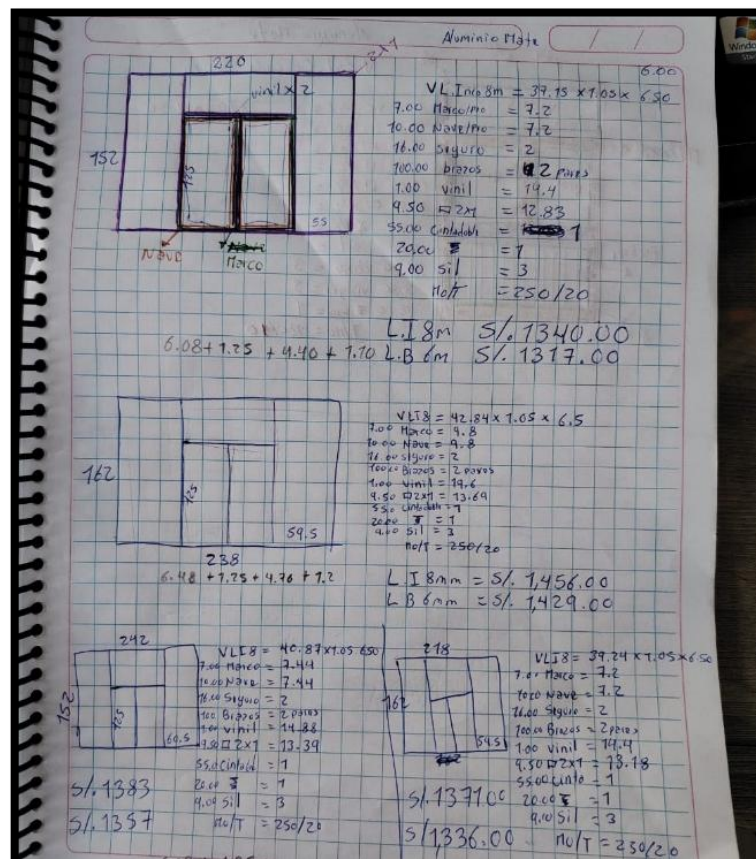 Aluminio Mate
/ /
220
2x1
6.00
vinil x 2
152
125
55
Nave
Marco
VL.Inco 8m = 37.15 x 1.05 x 6.50
7.00 Marco/mo = 7.2
10.00 Nave/mo = 7.2
16.00 Seguro = 2
100.00 brazos = 2 pares
1.00 vinil = 14.4
9.50 □ 2x1 = 12.83
55.00 Cintadobl = 1
20.00 = 1
9.00 Sil = 3
Mo/T = 250/20
L.I 8m S/. 1340.00
6.08 + 1.25 + 4.40 + 1.10
L.B 6m S/. 1317.00
162
125
59.5
238
6.48 + 1.25 + 4.76 + 1.2
VLI8 = 42.84 x 1.05 x 6.5
7.00 Marco = 9.8
10.00 Nave = 9.8
16.00 Seguro = 2
100.00 Brazos = 2 pares
1.00 vinil = 19.6
9.50 □ 2x1 = 13.69
55.0 Cintadobl = 1
20.00 = 1
9.00 Sil = 3
Mo/T = 250/20
L I 8mm = S/. 1,456.00
L B 6mm = S/. 1,429.00
242
152
125
60.5
VLI8 = 40.87 x 1.05 650
7.00 Marco = 7.44
10.00 Nave = 7.44
16.00 Seguro = 2
100. Brazos = 2 pares
1.00 vinil = 14.88
9.50 □ 2x1 = 13.39
55.0 Cintadobl = 1
20.00 = 1
9.00 Sil = 3
Mo/T = 250/20
S/. 1383
S/. 1357
218
162
125
54.5
VLI8 = 39.24 x 1.05 x 6.50
7.00 Marco = 7.2
10.00 Nave = 7.2
16.00 Seguro = 2
100.00 Brazos = 2 pares
1.00 vinil = 14.4
9.50 □ 2x1 = 13.18
55.00 Cinta = 1
20.00 = 1
9.00 Sil = 3
Mo/T = 250/20
S/. 1371.00
S/ 1,336.00